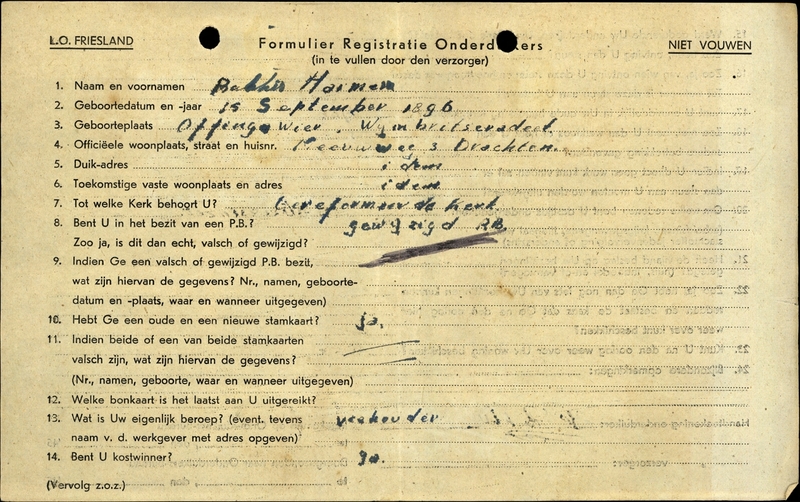 L.O. FRIESLAND
Formulier Registratie Onderduikers
NIET VOUWEN
(in te vullen door den verzorger)
1. Naam en voornamen Bakker Harmen
2. Geboortedatum en -jaar 15 September 1896
3. Geboorteplaats Offingawier, Wymbritseradeel
4. Officiëele woonplaats, straat en huisnr. 3 Drachten.
5. Duik-adres idem
6. Toekomstige vaste woonplaats en adres idem
7. Tot welke Kerk behoort U? Gereformeerde Kerk
8. Bent U in het bezit van een P.B.? gewijzigd P.B.
Zoo ja, is dit dan echt, valsch of gewijzigd?
9. Indien Ge een valsch of gewijzigd P.B. bezit,
wat zijn hiervan de gegevens? Nr., namen, geboorte-
datum en -plaats, waar en wanneer uitgegeven)
10. Hebt Ge een oude en een nieuwe stamkaart? ja.
11. Indien beide of een van beide stamkaarten
valsch zijn, wat zijn hiervan de gegevens?
(Nr., namen, geboorte, waar en wanneer uitgegeven)
12. Welke bonkaart is het laatst aan U uitgereikt?
13. Wat is Uw eigenlijk beroep? (event. tevens veehouder
naam v. d. werkgever met adres opgeven)
14. Bent U kostwinner? ja.
(Vervolg z.o.z.)